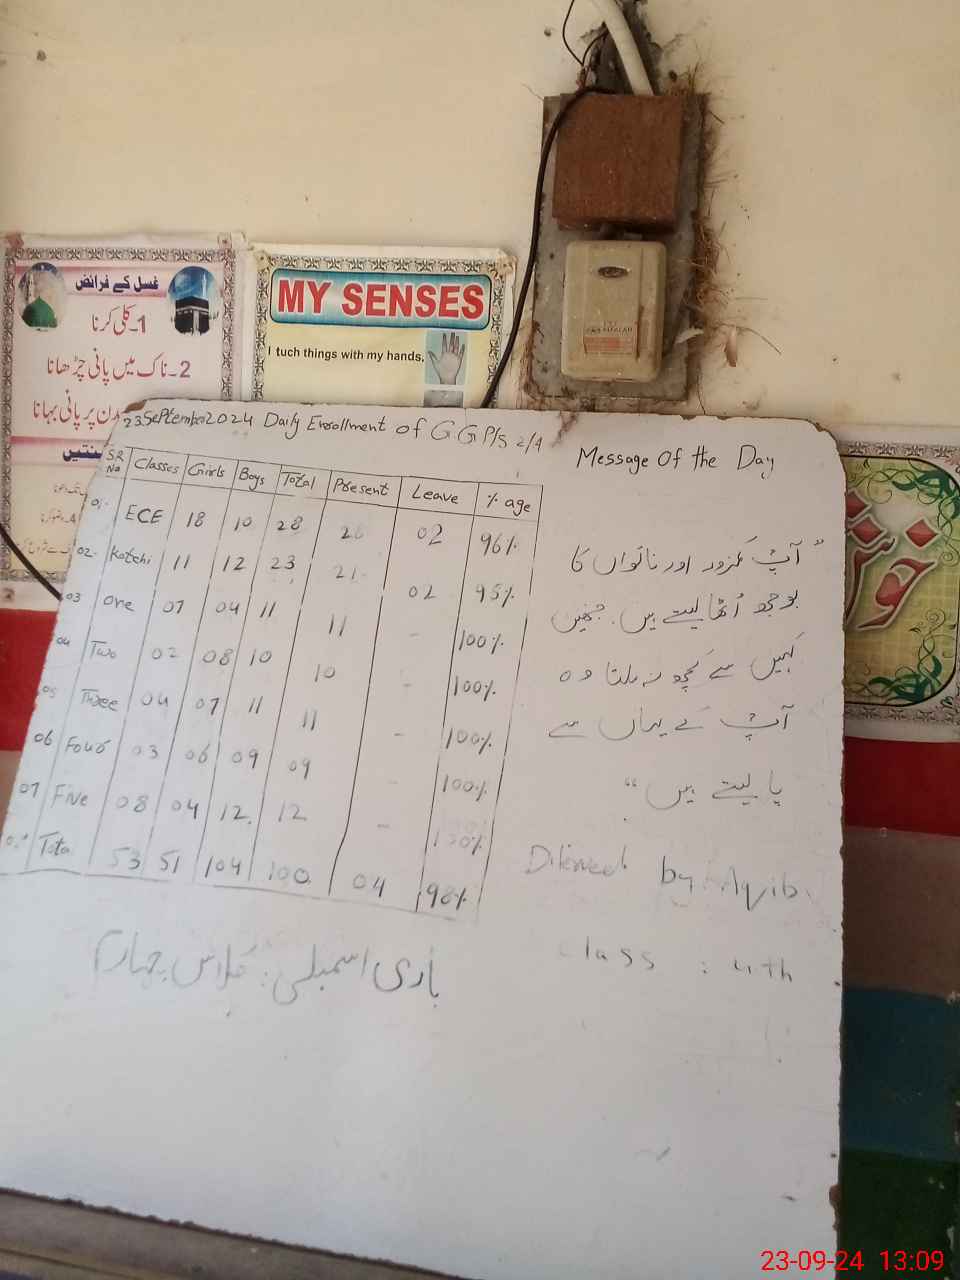 غسل کے فرائض
1۔ کلی کرنا
2۔ ناک میں پانی چڑھانا
پر پانی بہانا
MY SENSES
I tuch things with my hands.
23 September 2024 Daily Enrollment of G.G.P/S 2/4
SR No Classes Girls Boys Total Present Leave % age
01- ECE 18 10 28 26 02 96%
02- Katchi 11 12 23 21 02 95%
03 One 07 04 11 11 - 100%
04 Two 02 08 10 10 - 100%
05 Three 04 07 11 11 - 100%
06 Four 03 06 09 09 - 100%
07 Five 08 04 12 12 - 100%
Total 53 51 104 100 04 98%
باری اسمبلی: کلاس چہارم
Message Of the Day
"آپ کمزور اور ناتواں کا
بوجھ اُٹھا لیتے ہیں۔ جنھیں
کہیں سے کچھ نہ ملتا وہ
آپ کے یہاں سے
پا لیتے ہیں"
by Aqib
Class : 4th
23-09-24 13:09